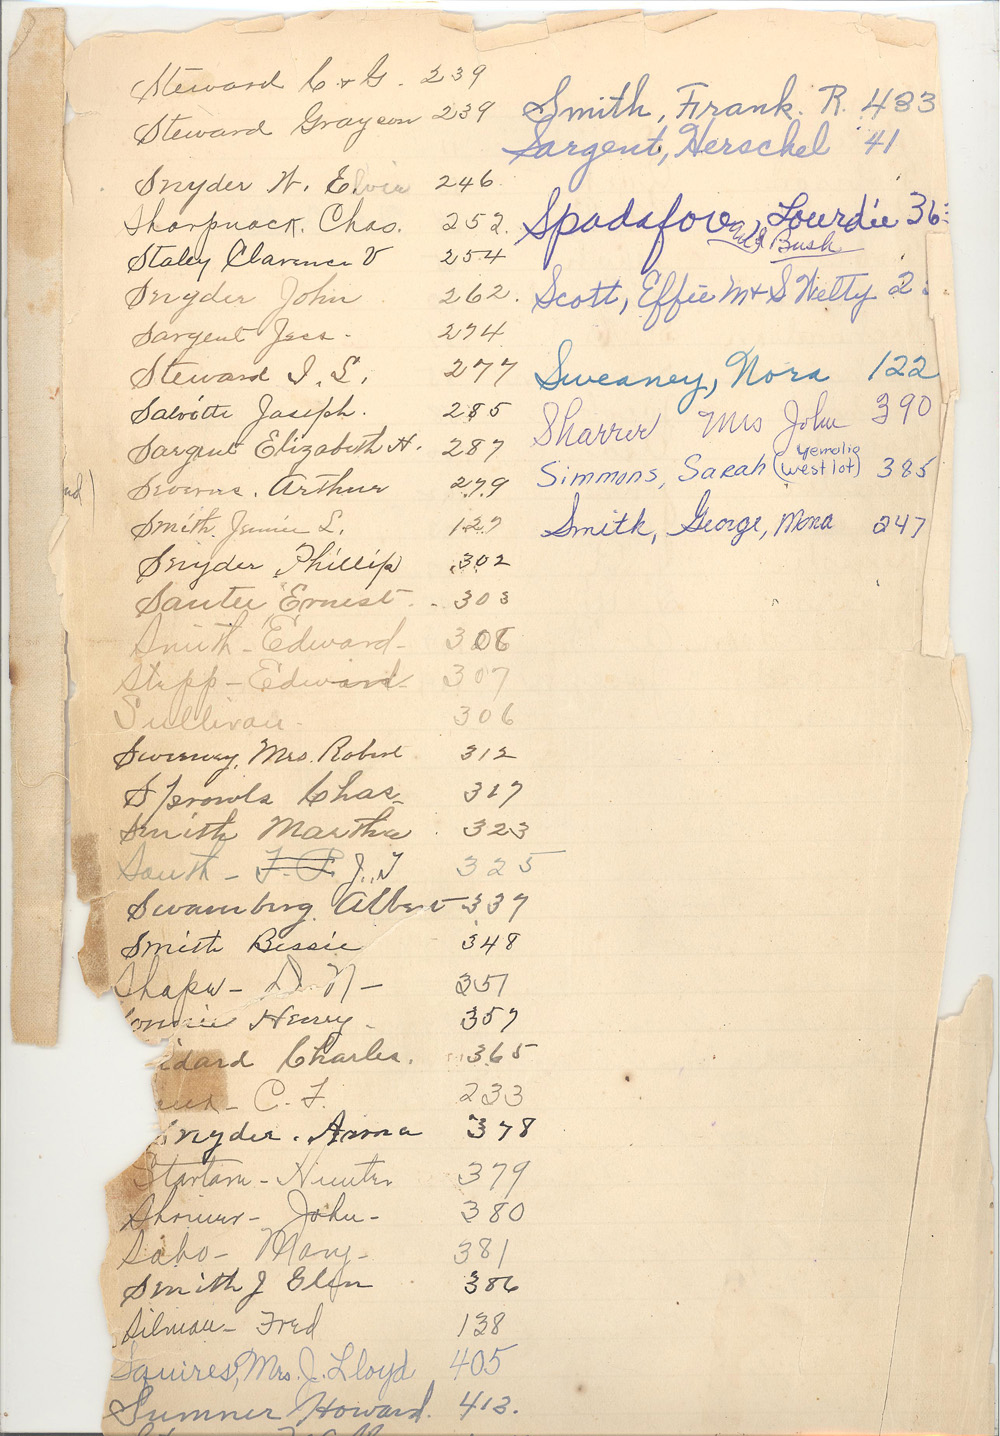 Steward C + G. 239
Steward Grayson 239
Snyder N. Elvie 246
Sharpnack. Chas. 252.
Staley Clarence V 254
Snyder John 262.
Sargent Jess. 274
Steward I. L. 277
Salvitti Joseph. 285
Sargent Elizabeth H. 287
Arthur 299
Smith Jennie L. 127
Snyder Phillip 302
Sauter Ernest. 303
Smith - Edward - 306
Stepp - Edward 307
Sullivan - 306
Sweeney, Mrs. Robert 312
Sprowls Chas. 317
Smith Martha 323
South - F. P. J. T 325
Swansberg. Albert 337
Smith Bessie 348
D. N - 351
Henry - 357
Charles. 365
C. F. 233
Snyder. Anna 378
Hunter 379
Shriver - John - 380
Sabo - Mary - 381
Smith J Glen 386
Silman - Fred 138
Squires, Mrs. J. Lloyd 405
Sumner Howard. 413.
Smith, Frank. R. 483
Sargent, Herschel 41
Spadafore, Lourdie 36
Bush
Scott, Effie M + S Hetty 2
Sweaney, Nora 122
Sharrer Mrs John 390
Simmons, Sarah (west lot) 385
Smith, George, Mona 247
nd)